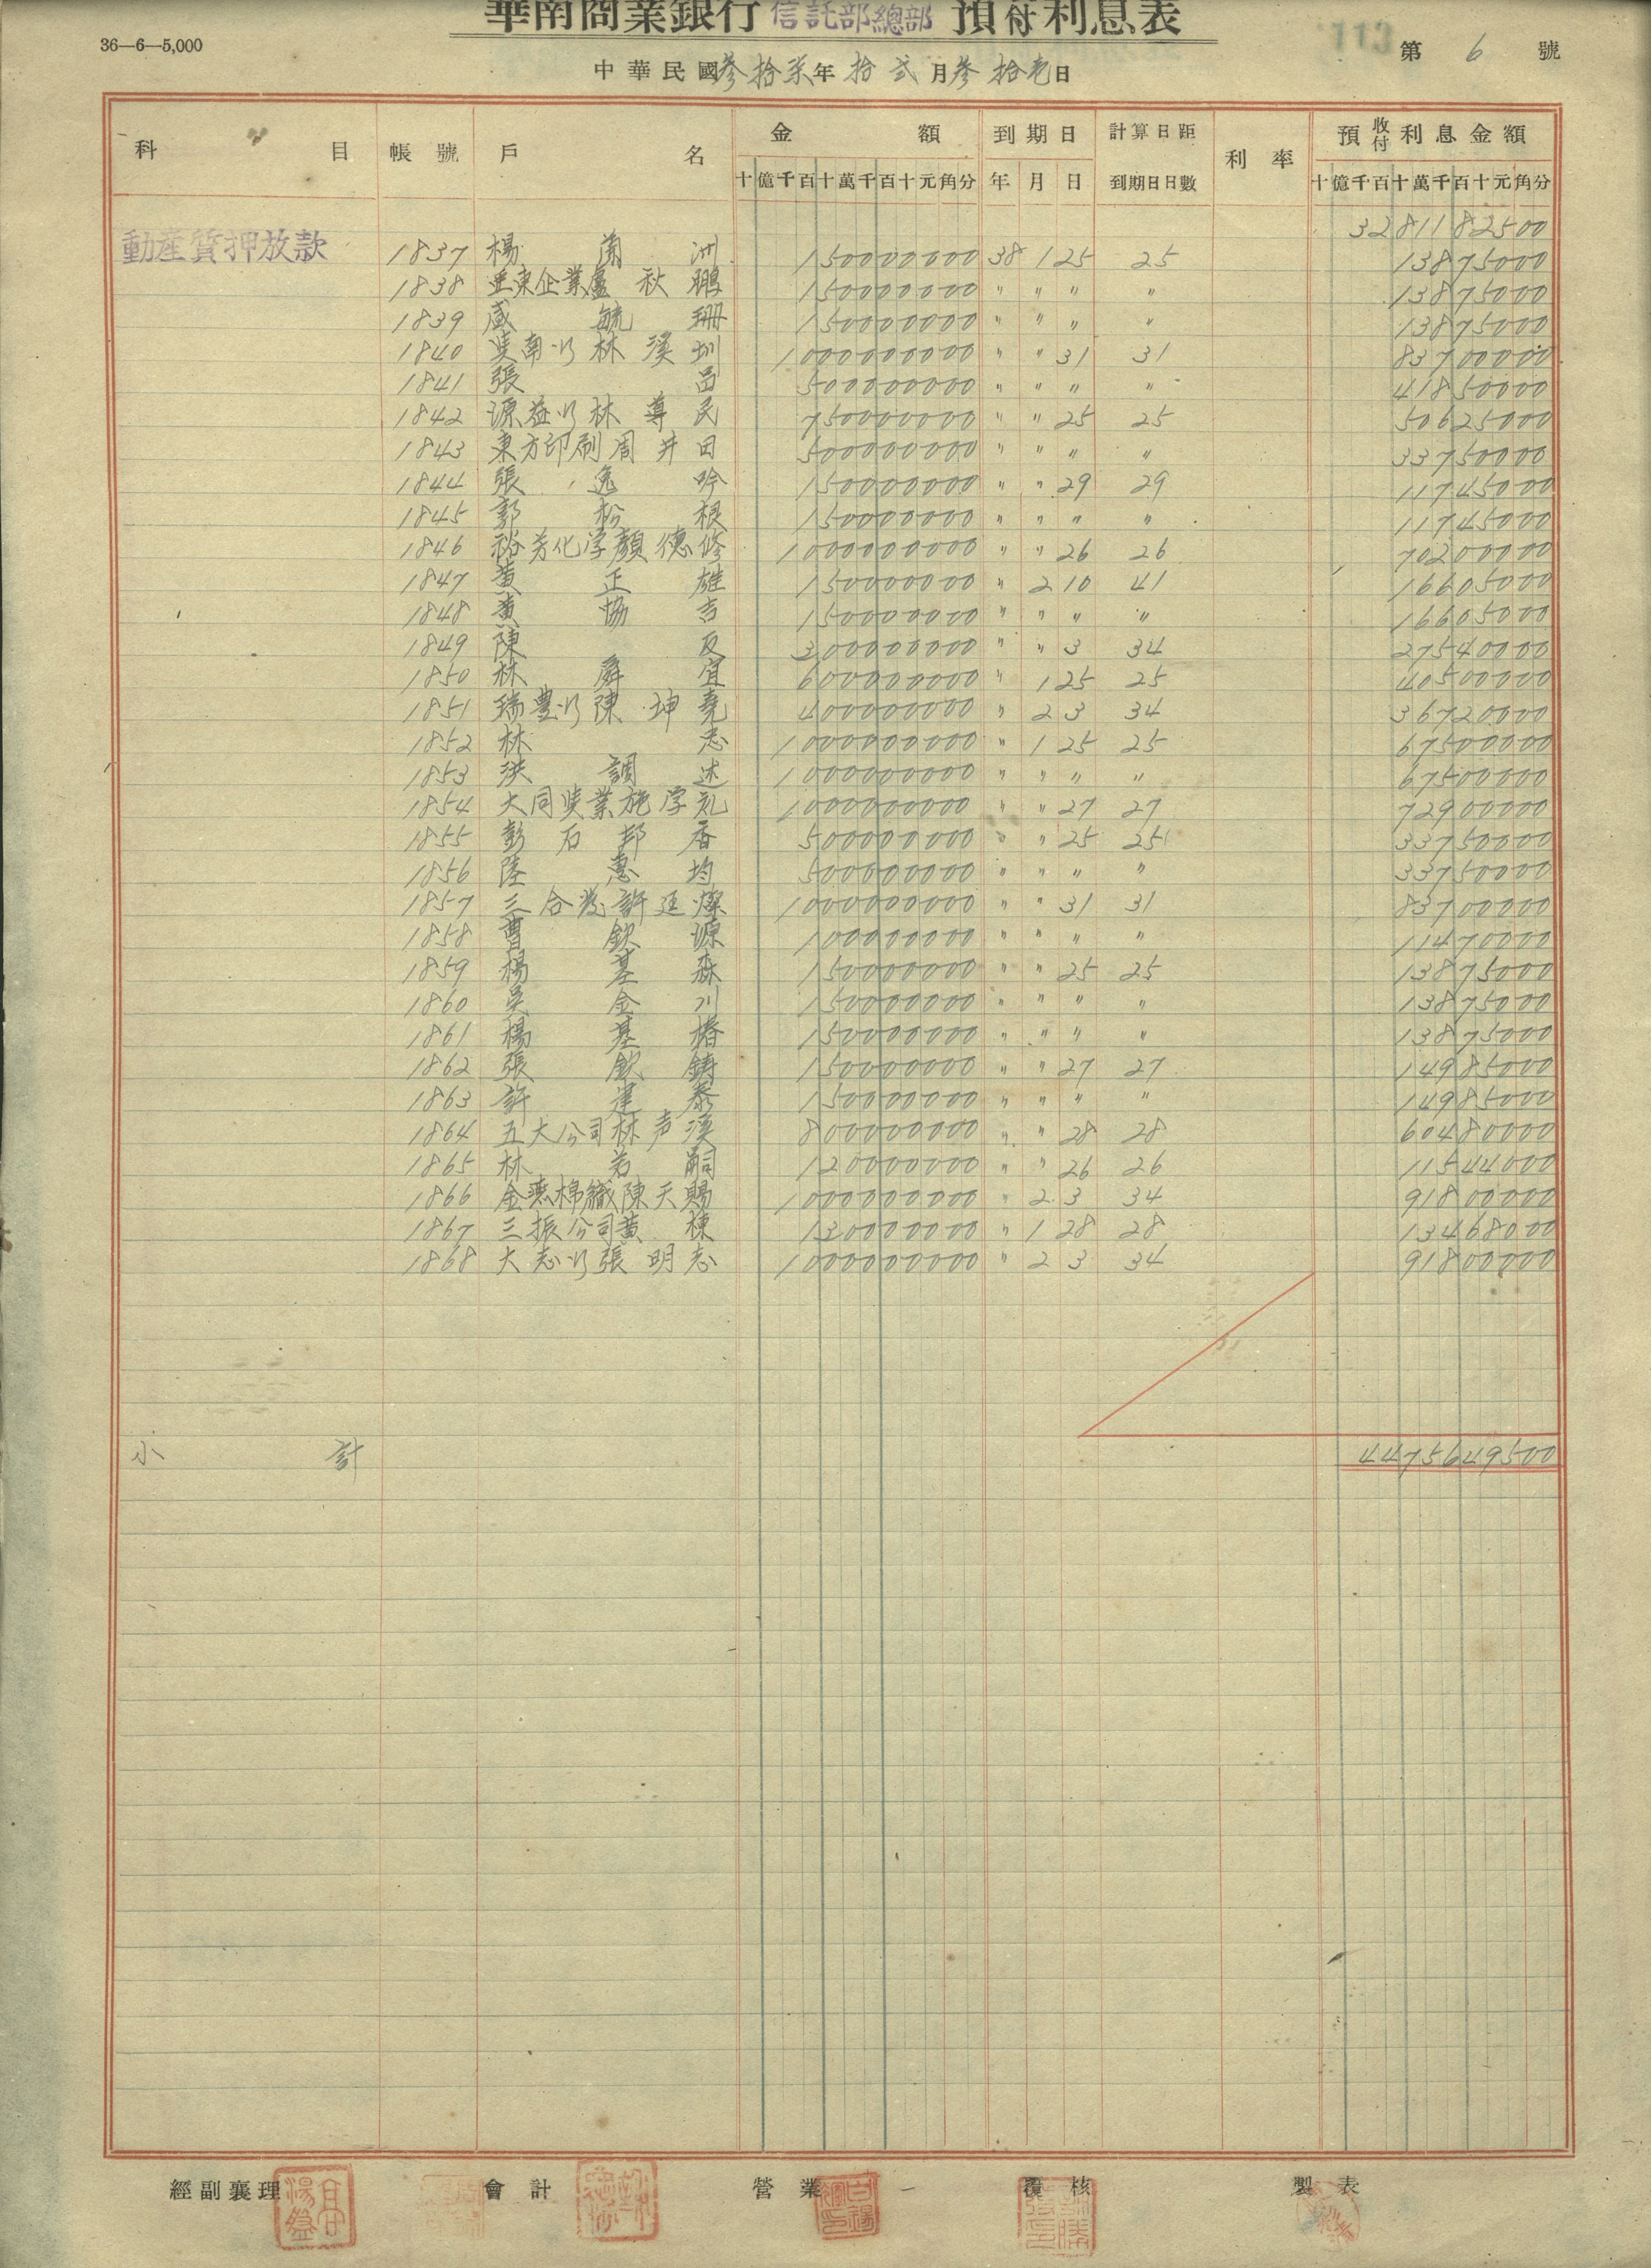 華南商業銀行 信託部總部 預收付利息表
36—6—5,000
113 第 6 號
中華民國叁拾柒年拾弍月叁拾壱日
科目 帳號 戶名 金額 到期日 計算日距到期日日數 利率 預收付利息金額
十億千百十萬千百十元角分 年 月 日 十億千百十萬千百十元角分
3281182500
動產質押放款 1837 楊蘭洲 150000000 38 1 25 25 13875000
1838 亜東企業盧秋鵬 150000000 〃 〃 〃 〃 13875000
1839 盛毓珊 150000000 〃 〃 〃 〃 13875000
1840 南以林溪圳 1000000000 〃 〃 31 31 83700000
1841 張 500000000 〃 〃 〃 〃 41850000
1842 源益以林尊民 750000000 〃 〃 25 25 50625000
1843 東方印刷周井田 500000000 〃 〃 〃 〃 33750000
1844 張逸吟 150000000 〃 〃 29 29 11745000
1845 郭松根 150000000 〃 〃 〃 〃 11745000
1846 裕芳化学顏德修 1000000000 〃 〃 26 26 70200000
1847 黃正雄 150000000 〃 2 10 41 16605000
1848 黃協吉 150000000 〃 〃 〃 〃 16605000
1849 陳反 300000000 〃 〃 3 34 27540000
1850 林舜宜 600000000 〃 1 25 25 40500000
1851 瑞豊以陳坤堯 400000000 〃 2 3 34 36720000
1852 林志 1000000000 〃 1 25 25 67500000
1853 洪調述 1000000000 〃 〃 〃 〃 67500000
1854 大同業施学礼 1000000000 〃 〃 27 27 72900000
1855 彭石邦香 500000000 〃 〃 25 25 33750000
1856 陸惠均 500000000 〃 〃 〃 〃 33750000
1857 三合許廷燦 1000000000 〃 〃 31 31 83700000
1858 曹欽源 100000000 〃 〃 〃 〃 11470000
1859 楊基森 150000000 〃 〃 25 25 13875000
1860 吳金川 150000000 〃 〃 〃 〃 13875000
1861 楊基椿 150000000 〃 〃 〃 〃 13875000
1862 張欽鑄 150000000 〃 〃 27 27 14985000
1863 許建泰 150000000 〃 〃 〃 〃 14985000
1864 五大公司林声溪 800000000 〃 〃 28 28 60480000
1865 林若嗣 120000000 〃 〃 26 26 11544000
1866 金棉織陳天賜 1000000000 〃 2 3 34 91800000
1867 三振公司黃棟 130000000 〃 1 28 28 13468000
1868 大志以張明志 1000000000 〃 2 3 34 91800000
小計 4475649500
經副襄理 會計 營業 覆核 製表